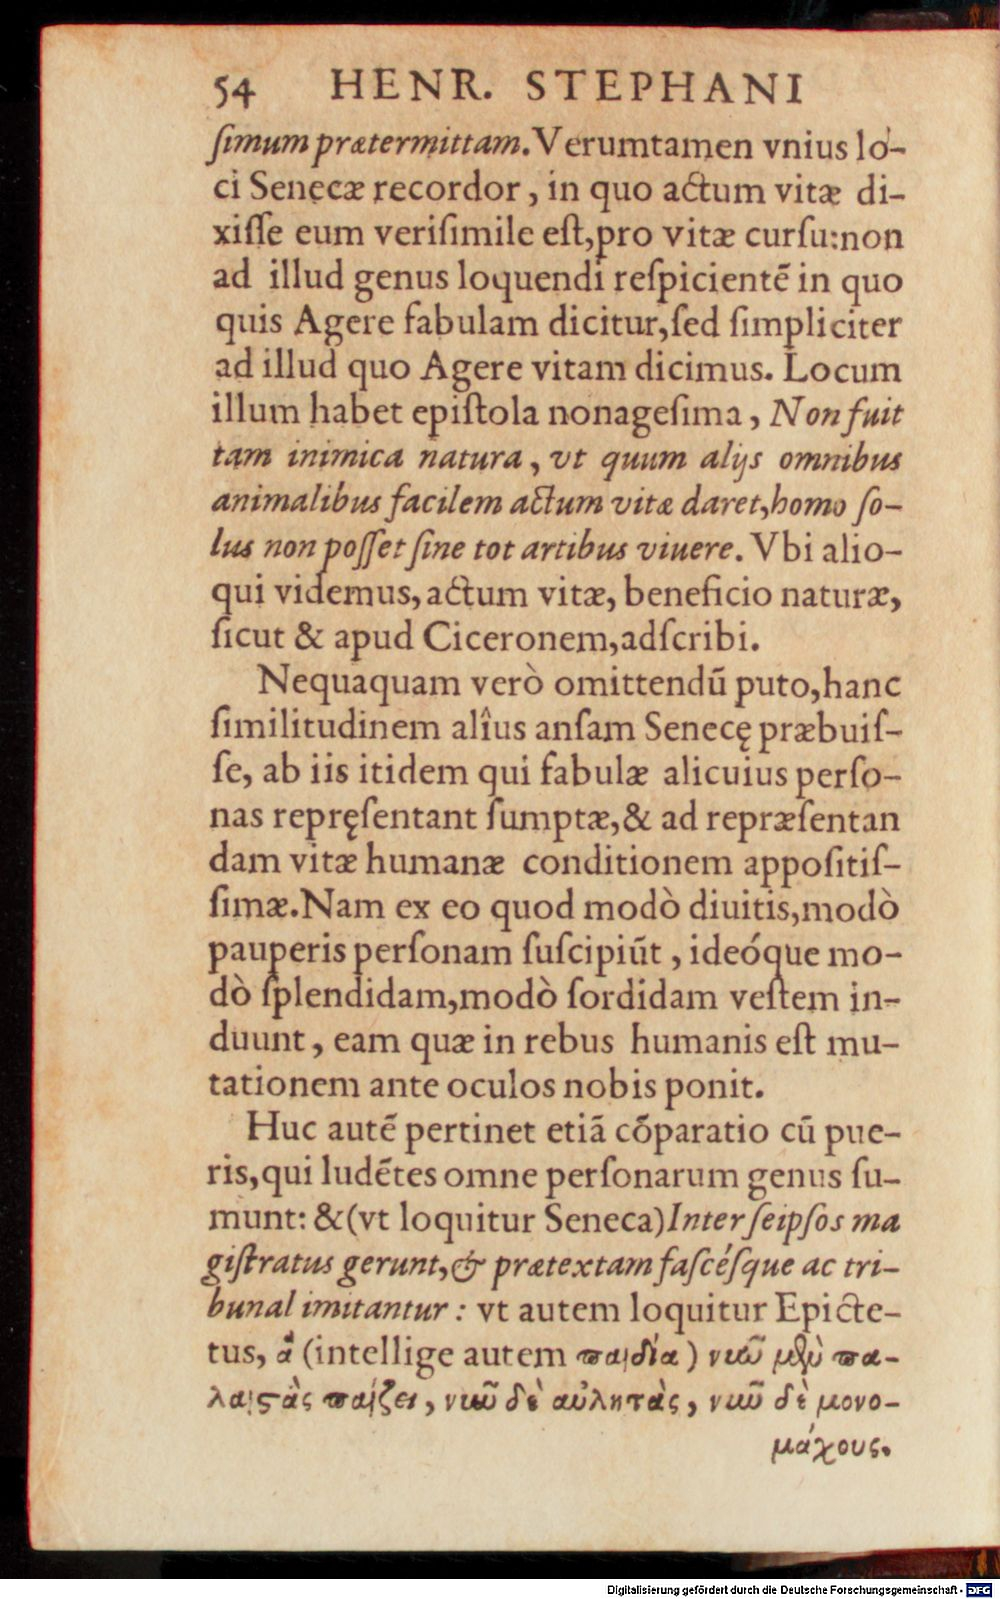 54 HENR. STEPHANI
ſimum prætermittam. Verumtamen vnius lo-
ci Senecæ recordor, in quo actum vitæ di-
xiſſe eum veriſimile eſt, pro vitæ curſu: non
ad illud genus loquendi reſpicientē in quo
quis Agere fabulam dicitur, ſed ſimpliciter
ad illud quo Agere vitam dicimus. Locum
illum habet epiſtola nonageſima, Non fuit
tam inimica natura, vt quum alijs omnibus
animalibus facilem actum vitæ daret, homo ſo-
lus non poſſet ſine tot artibus viuere. Vbi alio-
qui videmus, actum vitæ, beneficio naturæ,
ſicut & apud Ciceronem, adſcribi.
Nequaquam verò omittendū puto, hanc
ſimilitudinem alîus anſam Senecę præbuiſ-
ſe, ab iis itidem qui fabulæ alicuius perſo-
nas repręſentant ſumptæ, & ad repræſentan
dam vitæ humanæ conditionem appoſitiſ-
ſimæ. Nam ex eo quod modò diuitis, modò
pauperis perſonam ſuſcipiūt, ideóque mo-
dò ſplendidam, modò ſordidam veſtem in-
duunt, eam quæ in rebus humanis eſt mu-
tationem ante oculos nobis ponit.
Huc autē pertinet etiā cōparatio cū pue-
ris, qui ludētes omne perſonarum genus ſu-
munt: & (vt loquitur Seneca) Inter ſeipſos ma
giſtratus gerunt, & prætextam faſcéſque ac tri-
bunal imitantur: vt autem loquitur Epicte-
tus, ἃ (intellige autem παιδία) νῦν μὲν πα-
λαιστὰς παίζει, νῦν δὲ αὐλητὰς, νῦν δὲ μονο-
μάχους.
Digitalisierung gefördert durch die Deutsche Forschungsgemeinschaft - DFG